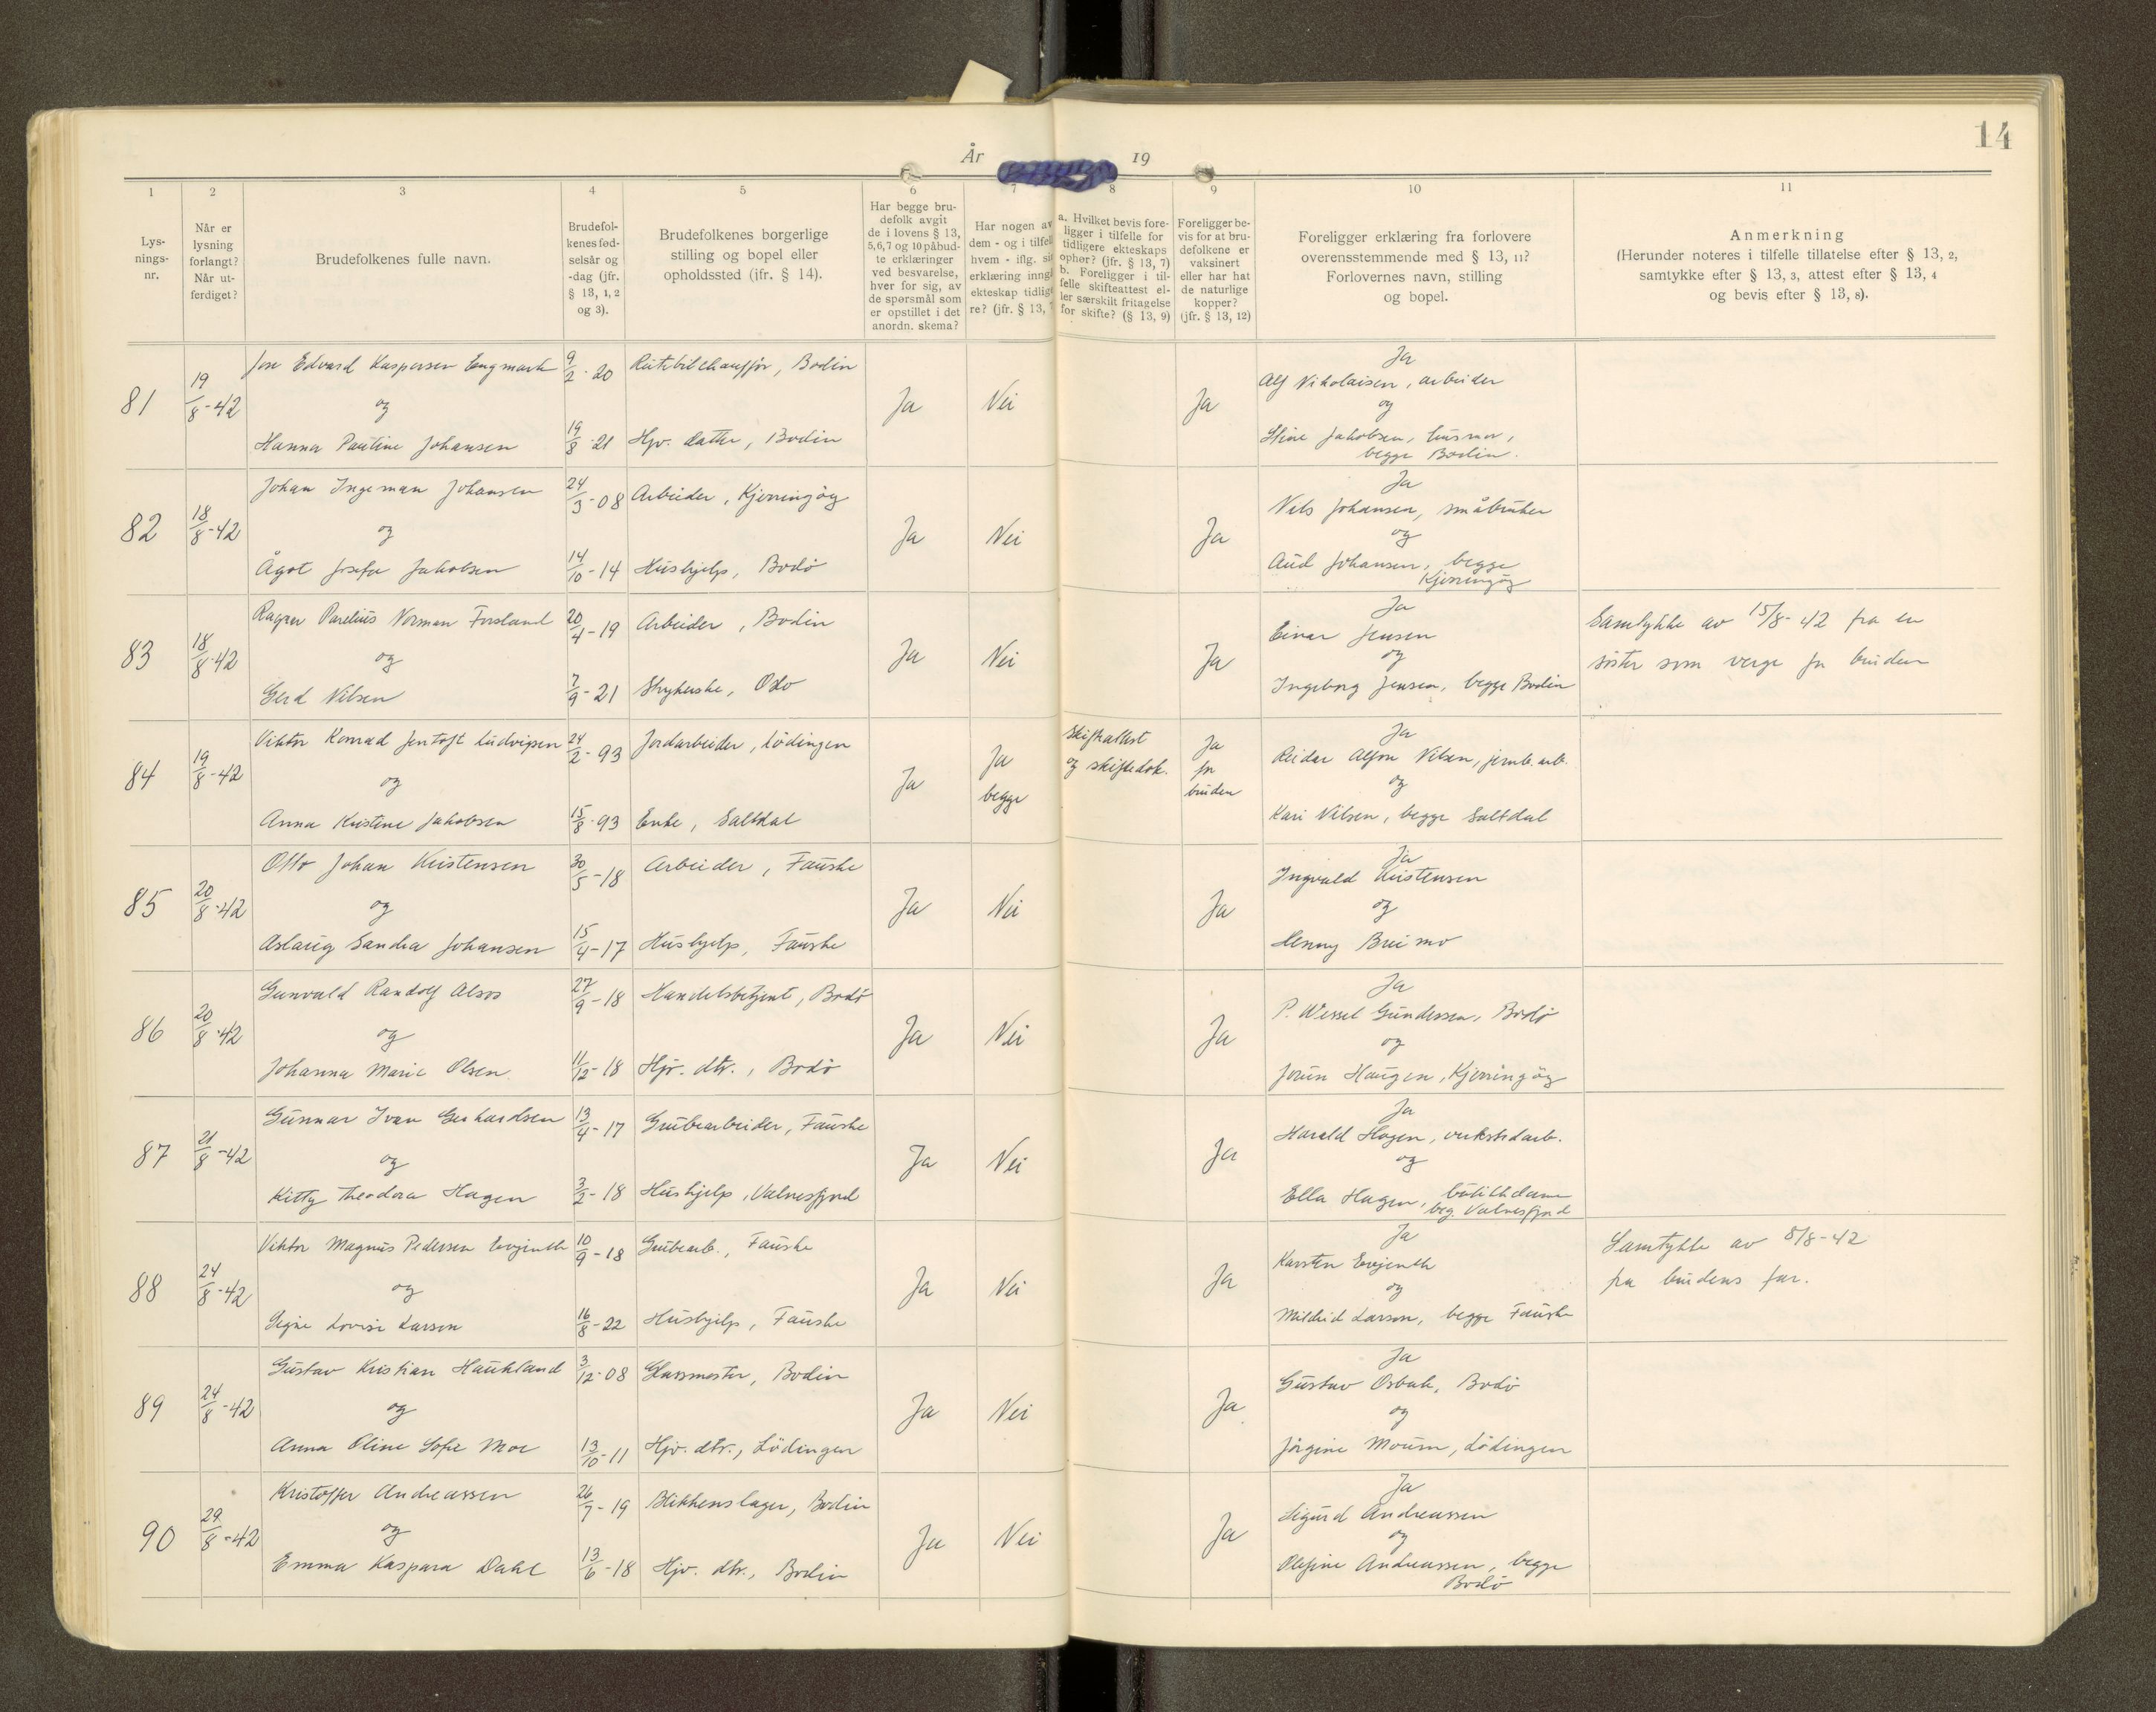 14
År 19
1 2 3 4 5 6 7 8 9 10 11
Lys-
nings-
nr.
Når er
lysning
forlangt?
Når ut-
ferdiget?
Brudefolkenes fulle navn.
Brudefol-
kenes fød-
selsår og
-dag (jfr.
§ 13, 1, 2
og 3).
Brudefolkenes borgerlige
stilling og bopel eller
opholdssted (jfr. § 14).
Har begge bru-
defolk avgit
de i lovens § 13,
5, 6, 7 og 10 påbud-
te erklæringer
ved besvarelse,
hver for sig, av
de spørsmål som
er opstillet i det
anordn. skema?
Har nogen av
dem - og i tilfel
hvem - iflg. si
erklæring inngå
ekteskap tidlig
re? (jfr. § 13, 7
a. Hvilket bevis fore-
ligger i tilfelle for
tidligere ekteskaps
opher? (jfr. § 13, 7)
b. Foreligger i til-
felle skifteattest el-
ler særskilt fritagelse
for skifte? (§ 13, 9)
Foreligger be-
vis for at bru-
defolkene er
vaksinert
eller har hat
de naturlige
kopper?
(jfr. § 13, 12)
Foreligger erklæring fra forlovere
overensstemmende med § 13, 11?
Forlovernes navn, stilling
og bopel.
Anmerkning
(Herunder noteres i tilfelle tillatelse efter § 13, 2,
samtykke efter § 13, 3, attest efter § 13, 4
og bevis efter § 13, 8).
81 19/8-42 Edvard Kaspersen Engmark 9/2-20 Rutebilchauffør, Bodin Ja Nei Ja Ja
og Alf Nikolaisen, arbeider
Hanna Pauline Johansen 19/8-21 Hjv. datter, Bodin og
Stine Jakobsen, husmor,
begge Bodin.
82 18/8-42 Johan Ingeman Johansen 24/3-08 Arbeider, Kjerringøy Ja Nei Ja Ja
og Nils Johansen, småbruker
Ågot Josefa Jakobsen 14/10-14 Hushjelp, Bodø og
Aud Johansen, begge
Kjerringøy
83 18/8-42 Ragnar Parelius Norman Forsland 20/4-19 Arbeider, Bodin Ja Nei Ja Ja Samtykke av 15/8-42 fra en
og Einar Jensen søster som verge for bruden
Gerd Nilsen 7/9-21 Strykerske, Oslo og
Ingeborg Jensen, begge Bodin
84 19/8-42 Viktor Konrad Jentoft Ludvigsen 24/2-93 Jordarbeider, Lødingen Ja Ja Skifteattest Ja Ja
og begge og skiftedok. for Reidar Alfon Nilsen, jernb. arb.
Anna Kristine Jakobsen 15/8-93 Enke, Saltdal bruden og
Kari Nilsen, begge Saltdal
85 20/8-42 Otto Johan Kristensen 30/5-18 Arbeider, Fauske Ja Nei Ja Ja
og Ingvald Kristensen
Aslaug Sandra Johansen 15/4-17 Hushjelp, Fauske og
Henny Breimo
86 20/8-42 Gunvald Randolf Alsos 27/9-18 Handelsbetjent, Bodø Ja Nei Ja Ja
og P. Wessel Gundersen, Bodø
Johanna Marie Olsen. 11/12-18 Hjv. dtr., Bodø og
Jorun Haugen, Kjerringøy
87 21/8-42 Gunnar Ivan Gerhardsen 13/4-17 Grubearbeider, Fauske Ja Nei Ja Ja
og Harald Hagen, verkstedarb.
Kitty Theodora Hagen 3/2-18 Hushjelp, Valnesfjord og
Ella Hagen, butikkdame
beg. Valnesfjord
88 24/8-42 Viktor Magnus Pedersen Evjenth 10/9-18 Grubearb., Fauske Ja Nei Ja Ja Samtykke av 8/8-42
og Karsten Evjenth fra brudens far.
Signe Lovise Larsen 16/8-22 Hushjelp, Fauske og
Mildrid Larsen, begge Fauske
89 24/8-42 Gustav Kristian Haukland 3/12-08 Glassmester, Bodin Ja Nei Ja Ja
og Gustav Osbak, Bodø
Anna Oline Sofie Moe 13/10-11 Hjv. dtr., Lødingen og
Jørgine Mourn, Lødingen
90 29/8-42 Kristoffer Andreassen 26/7-19 Blikkenslager, Bodin Ja Nei Ja Ja
og Sigurd Andreassen
Emma Kaspara Dahl 13/6-18 Hjv. dtr., Bodin og
Olefine Andreassen, begge
Bodø